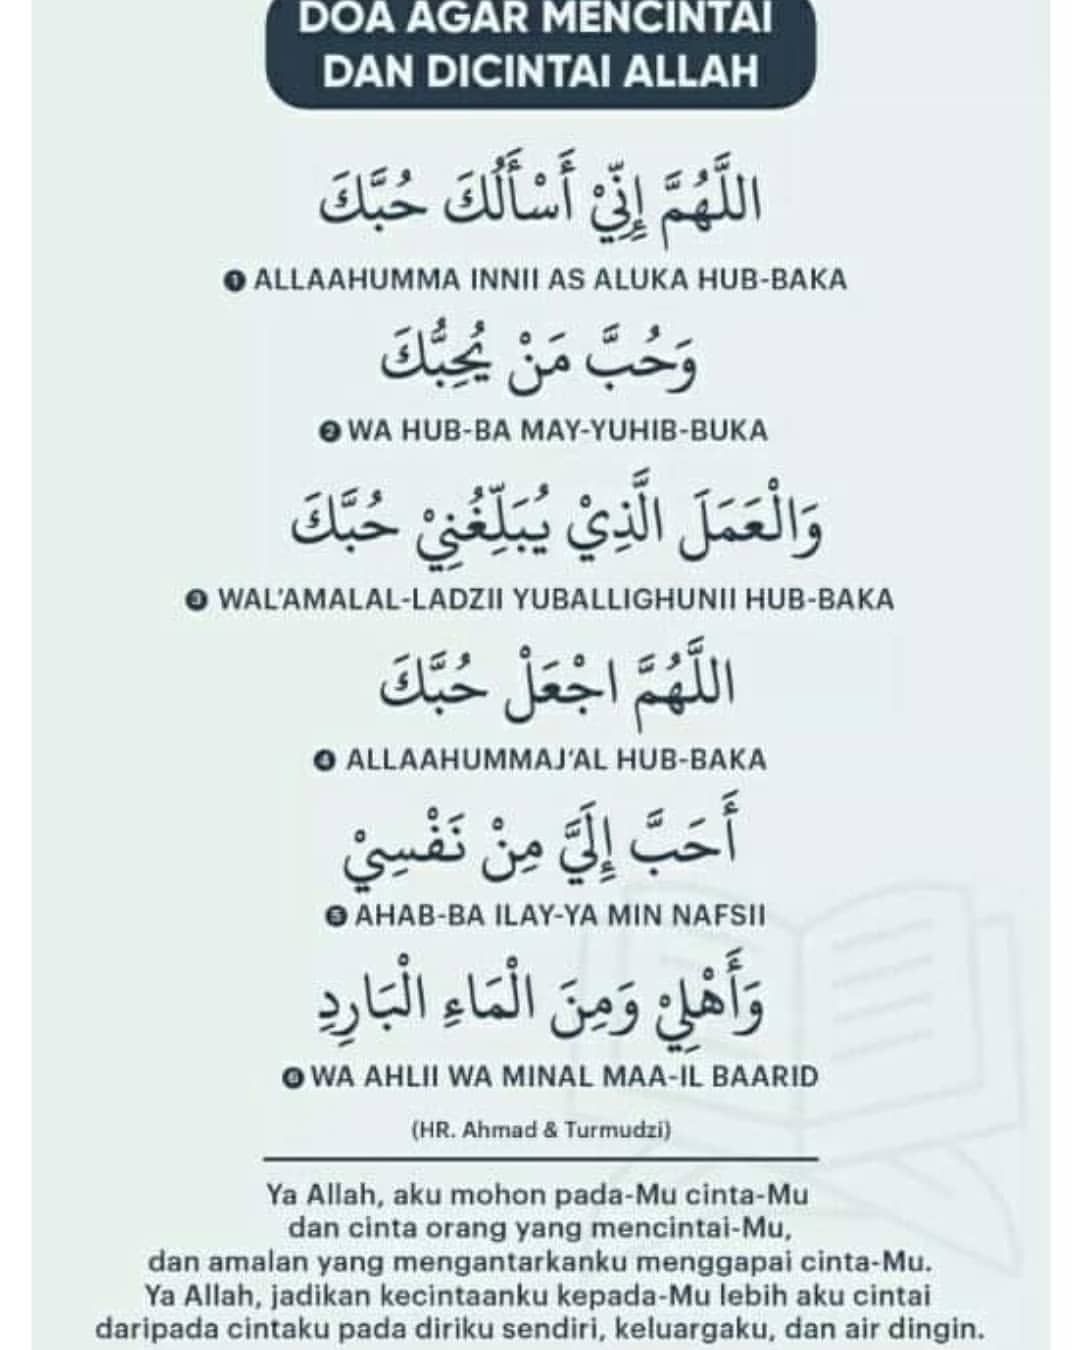 DOA AGAR MENCINTAI
DAN DICINTAI ALLAH
اللَّهُمَّ إِنِّيْ أَسْأَلُكَ حُبَّكَ
❶ ALLAAHUMMA INNII AS ALUKA HUB-BAKA
وَحُبَّ مَنْ يُحِبُّكَ
❷ WA HUB-BA MAY-YUHIB-BUKA
وَالْعَمَلَ الَّذِيْ يُبَلِّغُنِيْ حُبَّكَ
❸ WAL'AMALAL-LADZII YUBALLIGHUNII HUB-BAKA
اللَّهُمَّ اجْعَلْ حُبَّكَ
❹ ALLAAHUMMAJ'AL HUB-BAKA
أَحَبَّ إِلَيَّ مِنْ نَفْسِيْ
❺ AHAB-BA ILAY-YA MIN NAFSII
وَأَهْلِيْ وَمِنَ الْمَاءِ الْبَارِدِ
❻ WA AHLII WA MINAL MAA-IL BAARID
(HR. Ahmad & Turmudzi)
Ya Allah, aku mohon pada-Mu cinta-Mu
dan cinta orang yang mencintai-Mu,
dan amalan yang mengantarkanku menggapai cinta-Mu.
Ya Allah, jadikan kecintaanku kepada-Mu lebih aku cintai
daripada cintaku pada diriku sendiri, keluargaku, dan air dingin.